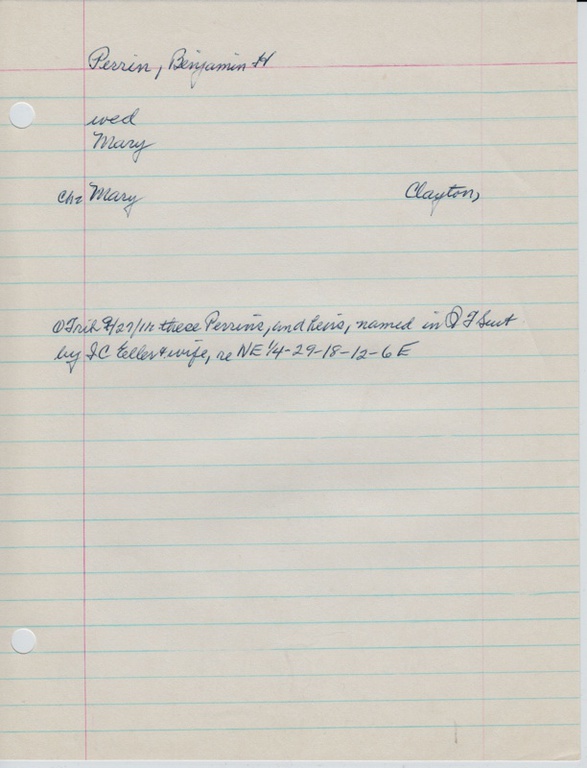 Perrin, Benjamin H
wed
Mary
Ch: Mary Clayton,
O Trib 9/27/11: these Perrins, and heirs, named in Q T Suit
by I C Eller & wife, re NE 1/4-29-18-12-6 E